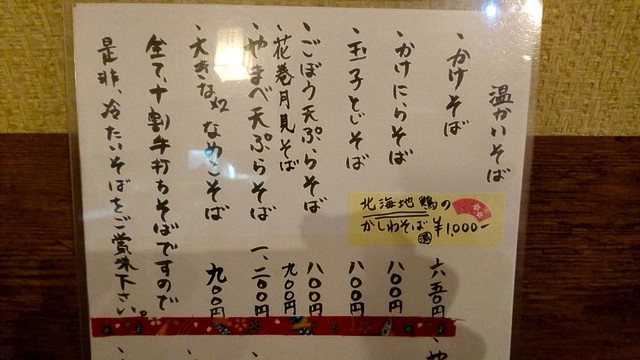 温かいそば
・かけそば 六五〇円
・かけにらそば 八〇〇円
・玉子とじそば 八〇〇円
・ごぼう天ぷらそば 八〇〇円
・花巻月見そば 九〇〇円
・やまべ天ぷらそば 一、二〇〇円
・大きななめこそば 九〇〇円
全て、十割手打ちそばですので
是非、冷たいそばをご賞味下さい。
北海地鶏の
かしわそば ¥1,000-
温